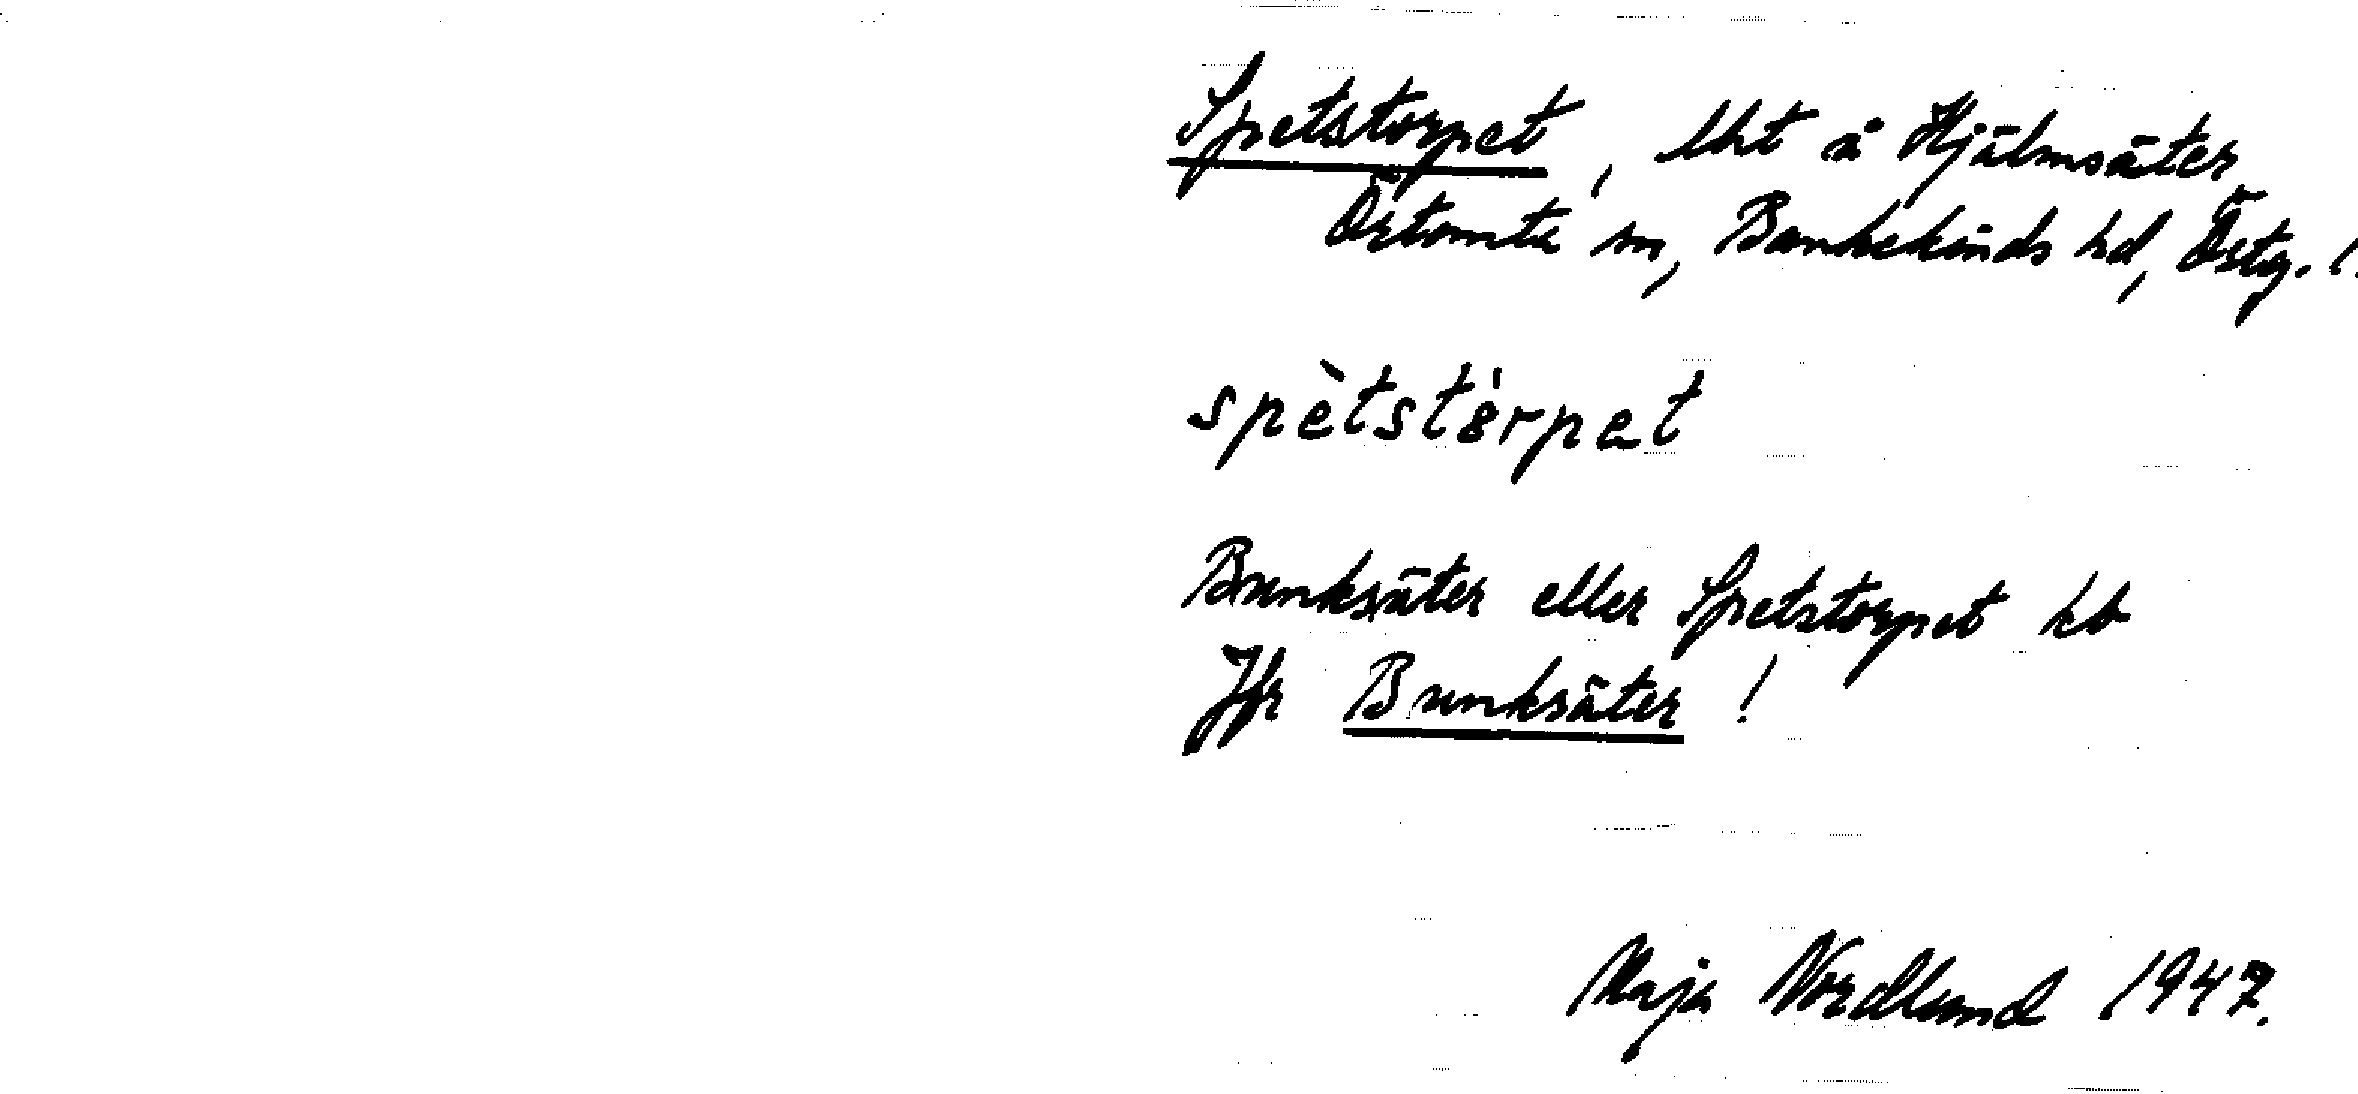 Spetstorpet, lht å Hjälmsäter
Örtomta sn, Bankekinds hd, Östg. l.
spètstòrpet
Bunksäter eller Spetstorpet kb
Jfr Bunksäter!
Maja Nordlund 1947.